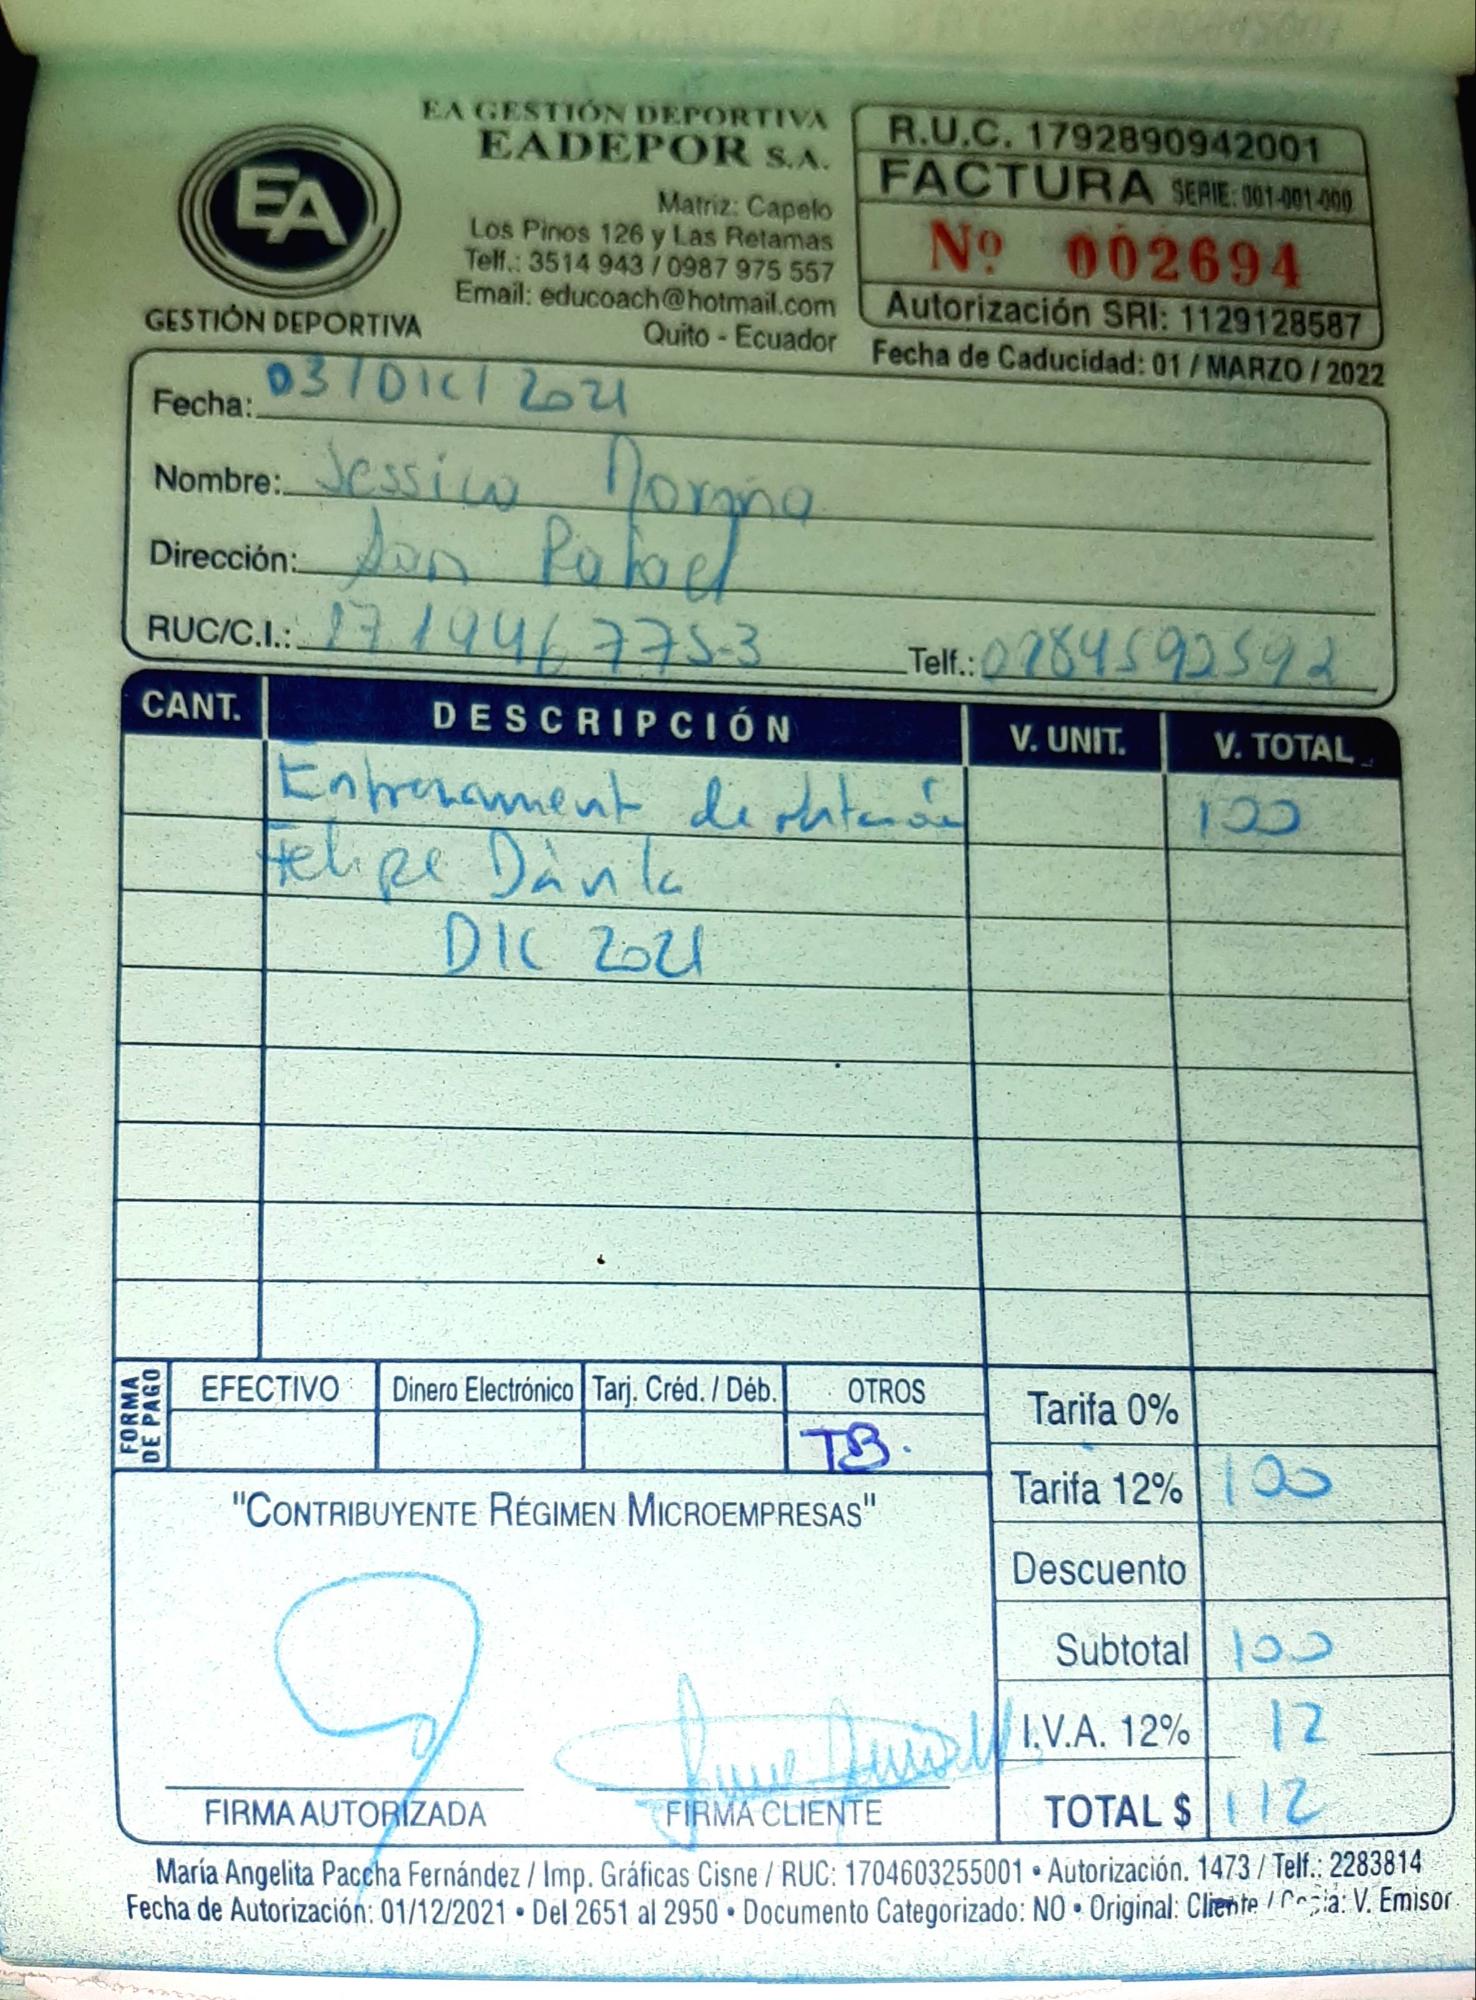 EA GESTIÓN DEPORTIVA
EADEPOR S.A.
EA
GESTIÓN DEPORTIVA
Matriz: Capelo
Los Pinos 126 y Las Retamas
Telf.: 3514 943 / 0987 975 557
Email: educoach@hotmail.com
Quito - Ecuador
R.U.C. 1792890942001
FACTURA SERIE: 001-001-000
Nº 002694
Autorización SRI: 1129128587
Fecha de Caducidad: 01 / MARZO / 2022
Fecha: 03/DIC/2021
Nombre: Jessica
Dirección: San Rafael
RUC/C.I.: 171946775-3 Telf.:
CANT. DESCRIPCIÓN V. UNIT. V. TOTAL
Entrenament de natación 100
Felipe Dávila
DIC 2021
FORMA DE PAGO
EFECTIVO Dinero Electrónico Tarj. Créd. / Déb. OTROS
TB.
Tarifa 0%
Tarifa 12% 100
Descuento
Subtotal 100
I.V.A. 12% 12
TOTAL $ 112
"CONTRIBUYENTE RÉGIMEN MICROEMPRESAS"
FIRMA AUTORIZADA FIRMA CLIENTE
María Angelita Paccha Fernández / Imp. Gráficas Cisne / RUC: 1704603255001 • Autorización. 1473 / Telf.: 2283814
Fecha de Autorización: 01/12/2021 • Del 2651 al 2950 • Documento Categorizado: NO • Original: Cliente / Copia: V. Emisor